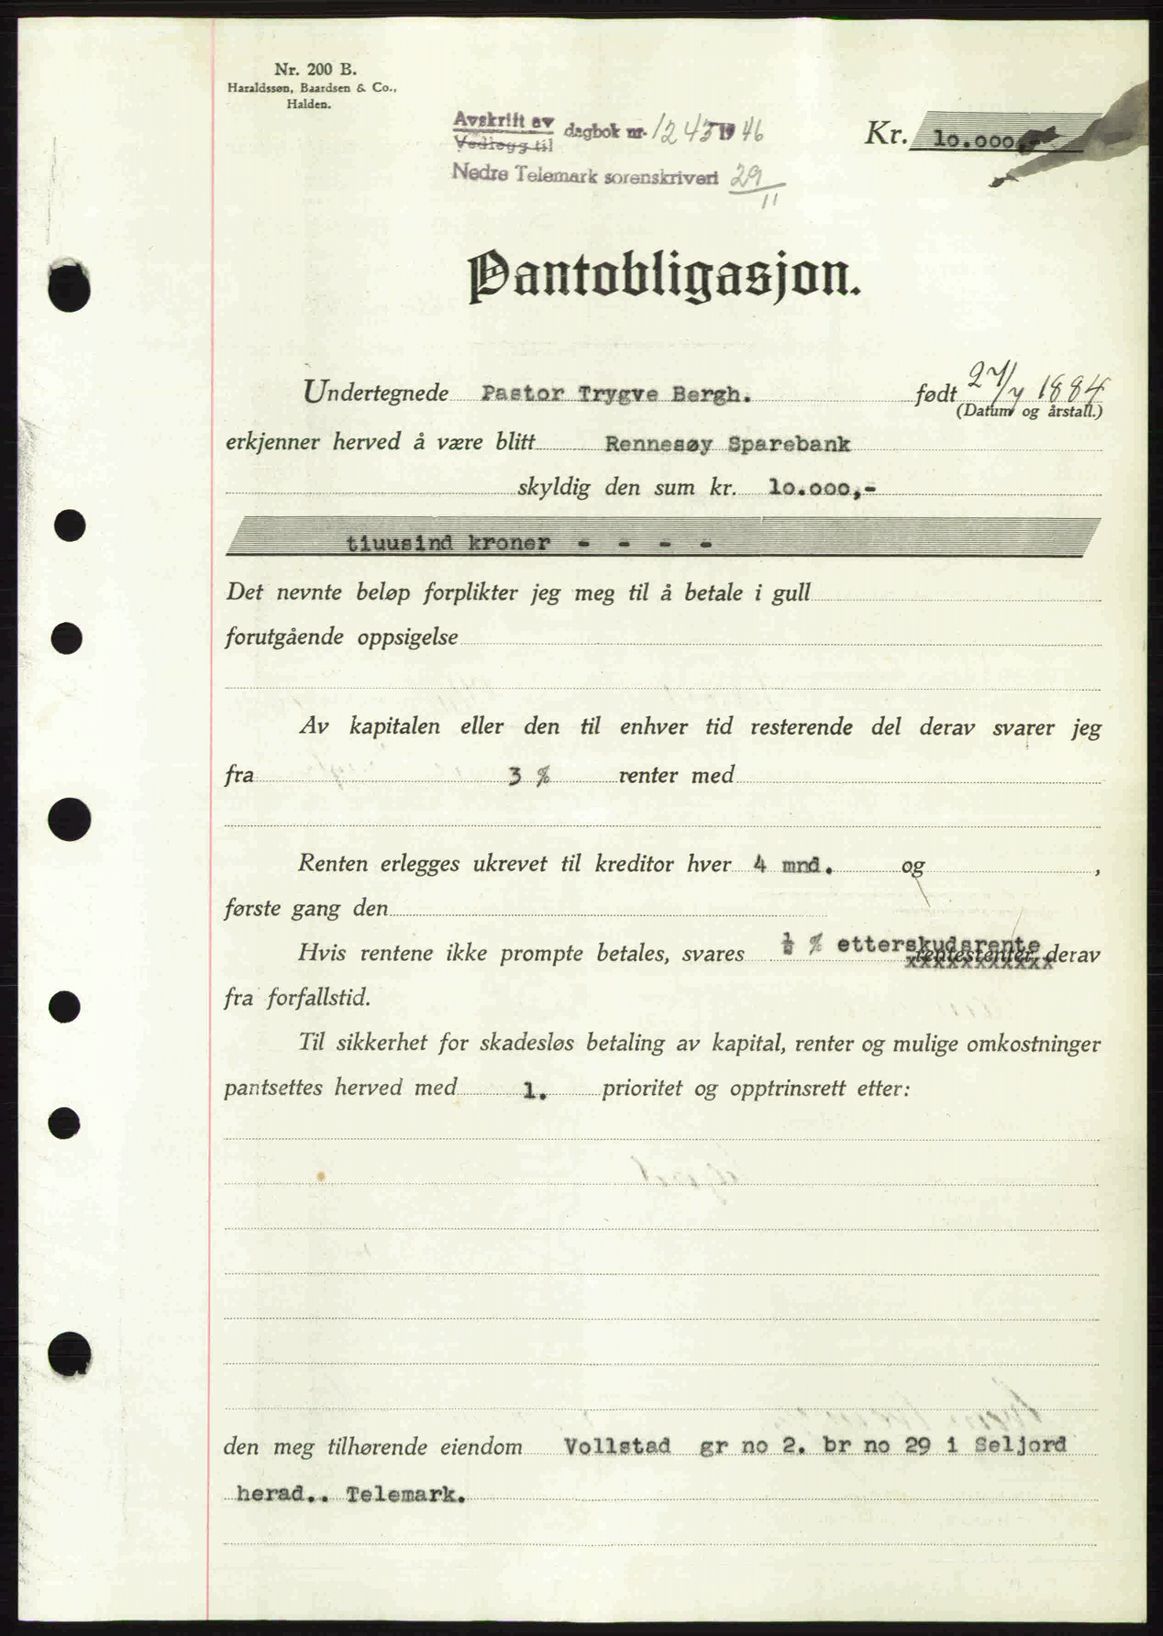 Nr. 200 B.
Haraldssøn, Baardsen & Co.,
Halden.
Avskrift av
Vedlegg til
dagbok nr. 1243 1946
Nedre Telemark sorenskriveri 29/11
Kr. 10.000,-
Pantobligasjon.
Undertegnede Pastor Trygve Bergh. født 27/7 1884
(Datum og årstall.)
erkjenner herved å være blitt Rennesøy Sparebank
skyldig den sum kr. 10.000,-
tiuusind kroner - - - -
Det nevnte beløp forplikter jeg meg til å betale i gull
forutgående oppsigelse
Av kapitalen eller den til enhver tid resterende del derav svarer jeg
fra 3 % renter med
Renten erlegges ukrevet til kreditor hver 4 mnd. og ,
første gang den
Hvis rentene ikke prompte betales, svares ½ % etterskudsrente rentesrenter derav
fra forfallstid.
Til sikkerhet for skadesløs betaling av kapital, renter og mulige omkostninger
pantsettes herved med 1. prioritet og opptrinsrett etter:
den meg tilhørende eiendom Vollstad gr no 2. br no 29 i Seljord
herad.. Telemark.